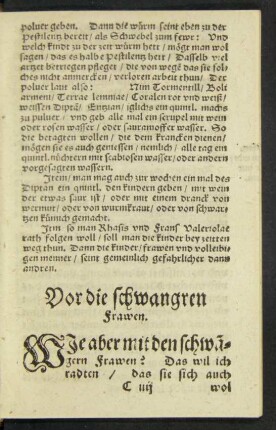 poluer geben. Dann die würm seint eben zu der
Pestilentz bereit/ als Schwebel zum fewr: Vnd
welch kindt zu der zeit würm hett/ mögt man wol
sagen/ das es halbe Pestilentz hett/ Dasselb viel
artzet betriegen pfleger/ die von wegē das sie sol-
ches nicht anmercken/ verloren arbeit thun/ Der
poluer laut also: Nim Tormentill/ Boli
armeni/ Terrae lemniae/ Coralen rot vnd weiß/
weissen Diptā/ Entzian/ iglichs ein quintl. machs
zu puluer/ vnd geb alle mal ein scrupel mit wein
oder rosen wasser/ oder saurampffer wasser. So
die betagten wollen/ die dem krancken dienen/
mögen sie es auch geniessen/ nemlich/ alle tag ein
quintl. nüchtern mit scabiosen wasser/ oder andern
vorgesagten wassern.
Item/ man mag auch zur wochen ein mal des
Diptān ein quintl. den kindern geben/ mit wein
der etwas saur ist/ oder mit einem dranck von
wermut/ oder von wurmkraut/ oder von schwar-
tzen kümich gemacht.
Item so man Rhasis vnd Frans Valeriolae
rath folgen woll/ soll man die kinder bey zeiten
weg thun. Dann die kinder/ frawen vnd volleibi-
gen menner/ seint gemeinlich gefahrlicher dann
andren.
Vor die schwangren
Frawen.
WJe aber mit den schwā-
gern Frawen? Das wil ich
radten/ das sie sich auch
C iiij wol